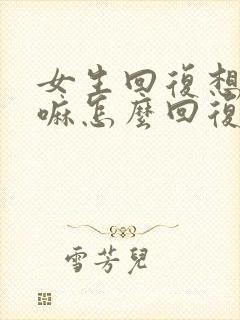 女生回復想
嘛怎麼回復
雪芳兒